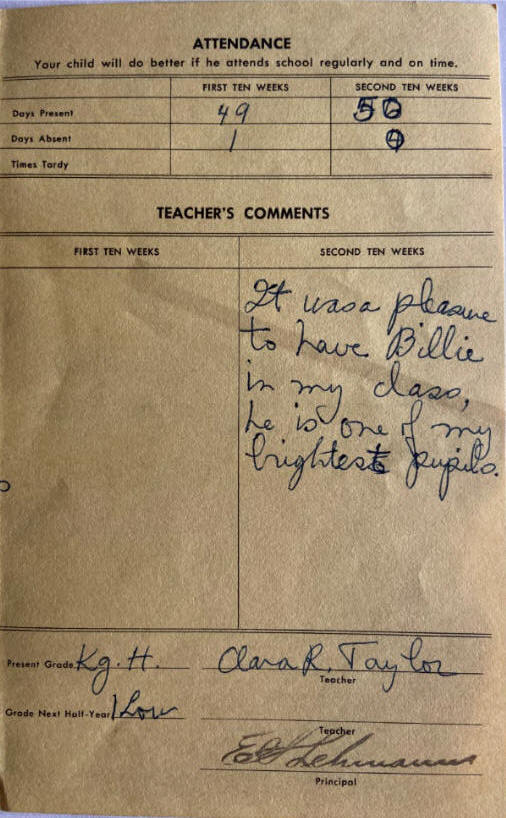 ATTENDANCE
Your child will do better if he attends school regularly and on time.
FIRST TEN WEEKS SECOND TEN WEEKS
Days Present 49 50
Days Absent 1
Times Tardy
TEACHER'S COMMENTS
FIRST TEN WEEKS SECOND TEN WEEKS
It was a pleasure
to have Billie
in my class,
he is one of my
brightest pupils.
Present Grade Kg. H. Clara R. Taylor
Teacher
Grade Next Half-Year 1 Low
Teacher
Lehmann
Principal